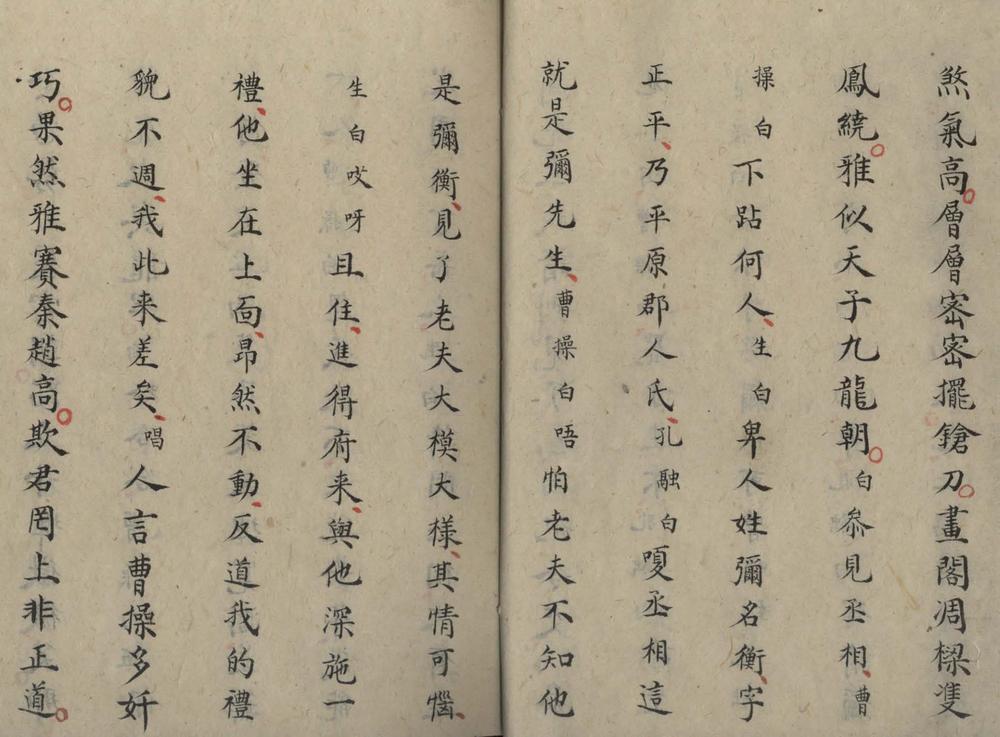 煞氣高層層密密擺鎗刀畫閣凋樑隻
鳳繞雅似天子九龍朝白叅見丞相曹
操白下跕何人生白卑人姓彌名衡字
正平乃平原郡人氏孔融白嗄丞相這
就是彌先生曹操白唔怕老夫不知他
是彌衡見了老夫大模大樣其情可惱
生白哎呀且住進得府来與他深施一
禮他坐在上面昻然不動反道我的禮
貌不週我此来差矣唱人言曹操多奸
巧果然雅賽秦趙高欺君罔上非正道